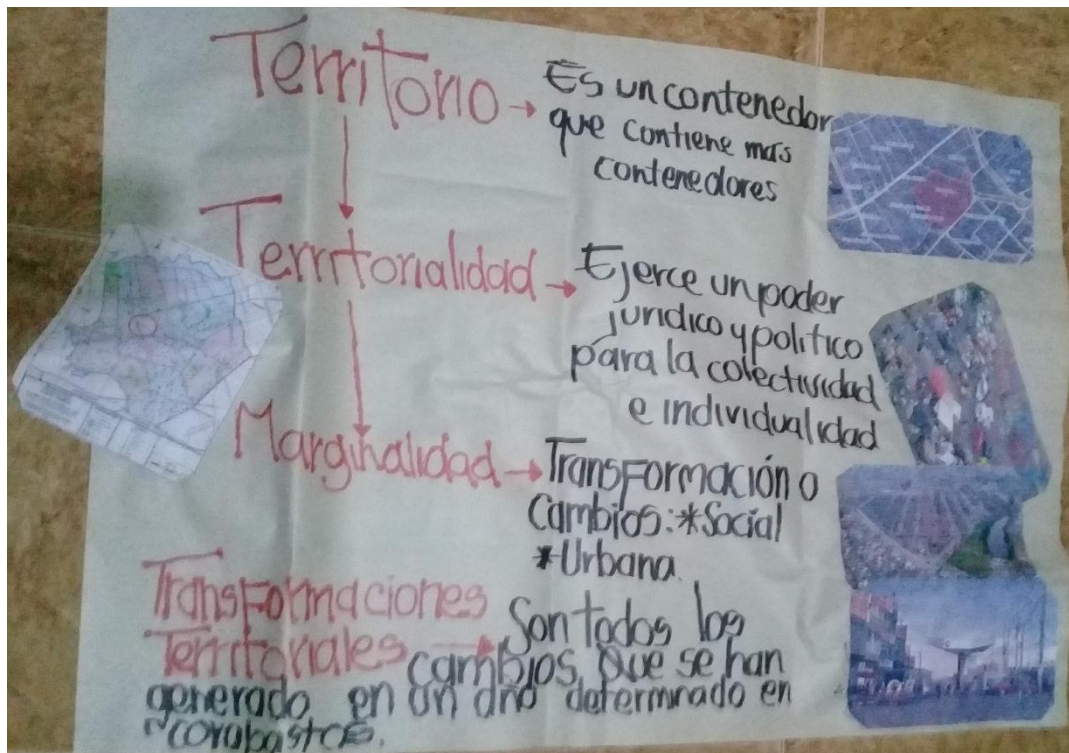 Territorio → Es un contenedor
que contiene mas
contenedores
Territorialidad → Ejerce un poder
juridico y politico
para la colectividad
e individualidad
Marginalidad → Transformación o
Cambios: *Social
*Urbana.
Transformaciones
Territoriales → Son todos los
cambios que se han
generado en un año determinado en
"corabastos.